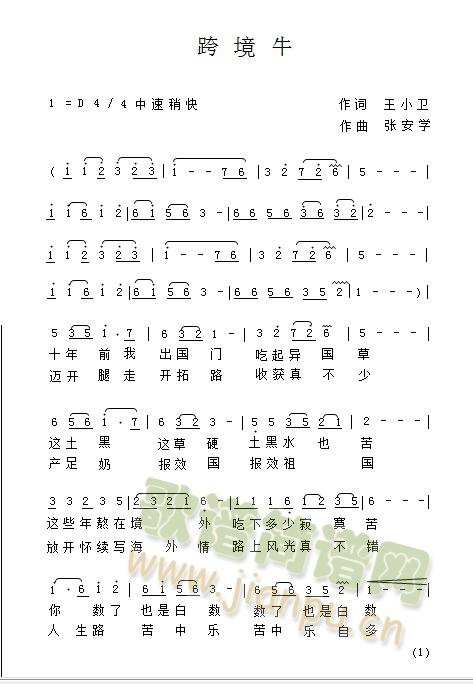 跨境牛
1=D 4/4中速稍快 作词 王小卫
作曲 张安学
( i i 2 3 2 3 | i - - 7 6 | 3 2 7 2 6 | 5 - - - |
i i 6 i 2 | 6 i 5 6 5 | 6 6 5 6 3 6 3 2 | 2 - - - |
i i 2 3 2 3 | i - - 7 6 | 3 2 7 2 6 | 5 - - - |
i i 6 i 2 | 6 i 5 6 5 | 6 6 5 6 3 5 2 | 1 - - - )|
5 3 5 i · 7 | 6 3 2 - | 3 2 7 2 6 | 5 - - - |
十年 前我 出国 门 吃起异 国 草
迈开 腿走 开拓 路 收获真 不 少
6 5 6 i · 7 | 6 3 2 - | 3 2 3 5 2 1 | 2 - - - |
这土 黑 这草 硬 土黑水 也 苦
产足 奶 报效 国 报效祖 国
3 3 2 3 5 | 2 3 2 1 6 | 1 1 1 6 1 3 5 | 6 - - - |
这些年熬在境 外 吃下多少寂 寞 苦
放开怀续写海 外 情 路上风光真 不 错
你 数了 也是白 数 数了 也是白 数
人 生路 苦中 乐 苦中 乐 自 多
(1)
歌谱简谱网
www.jianpu.cn